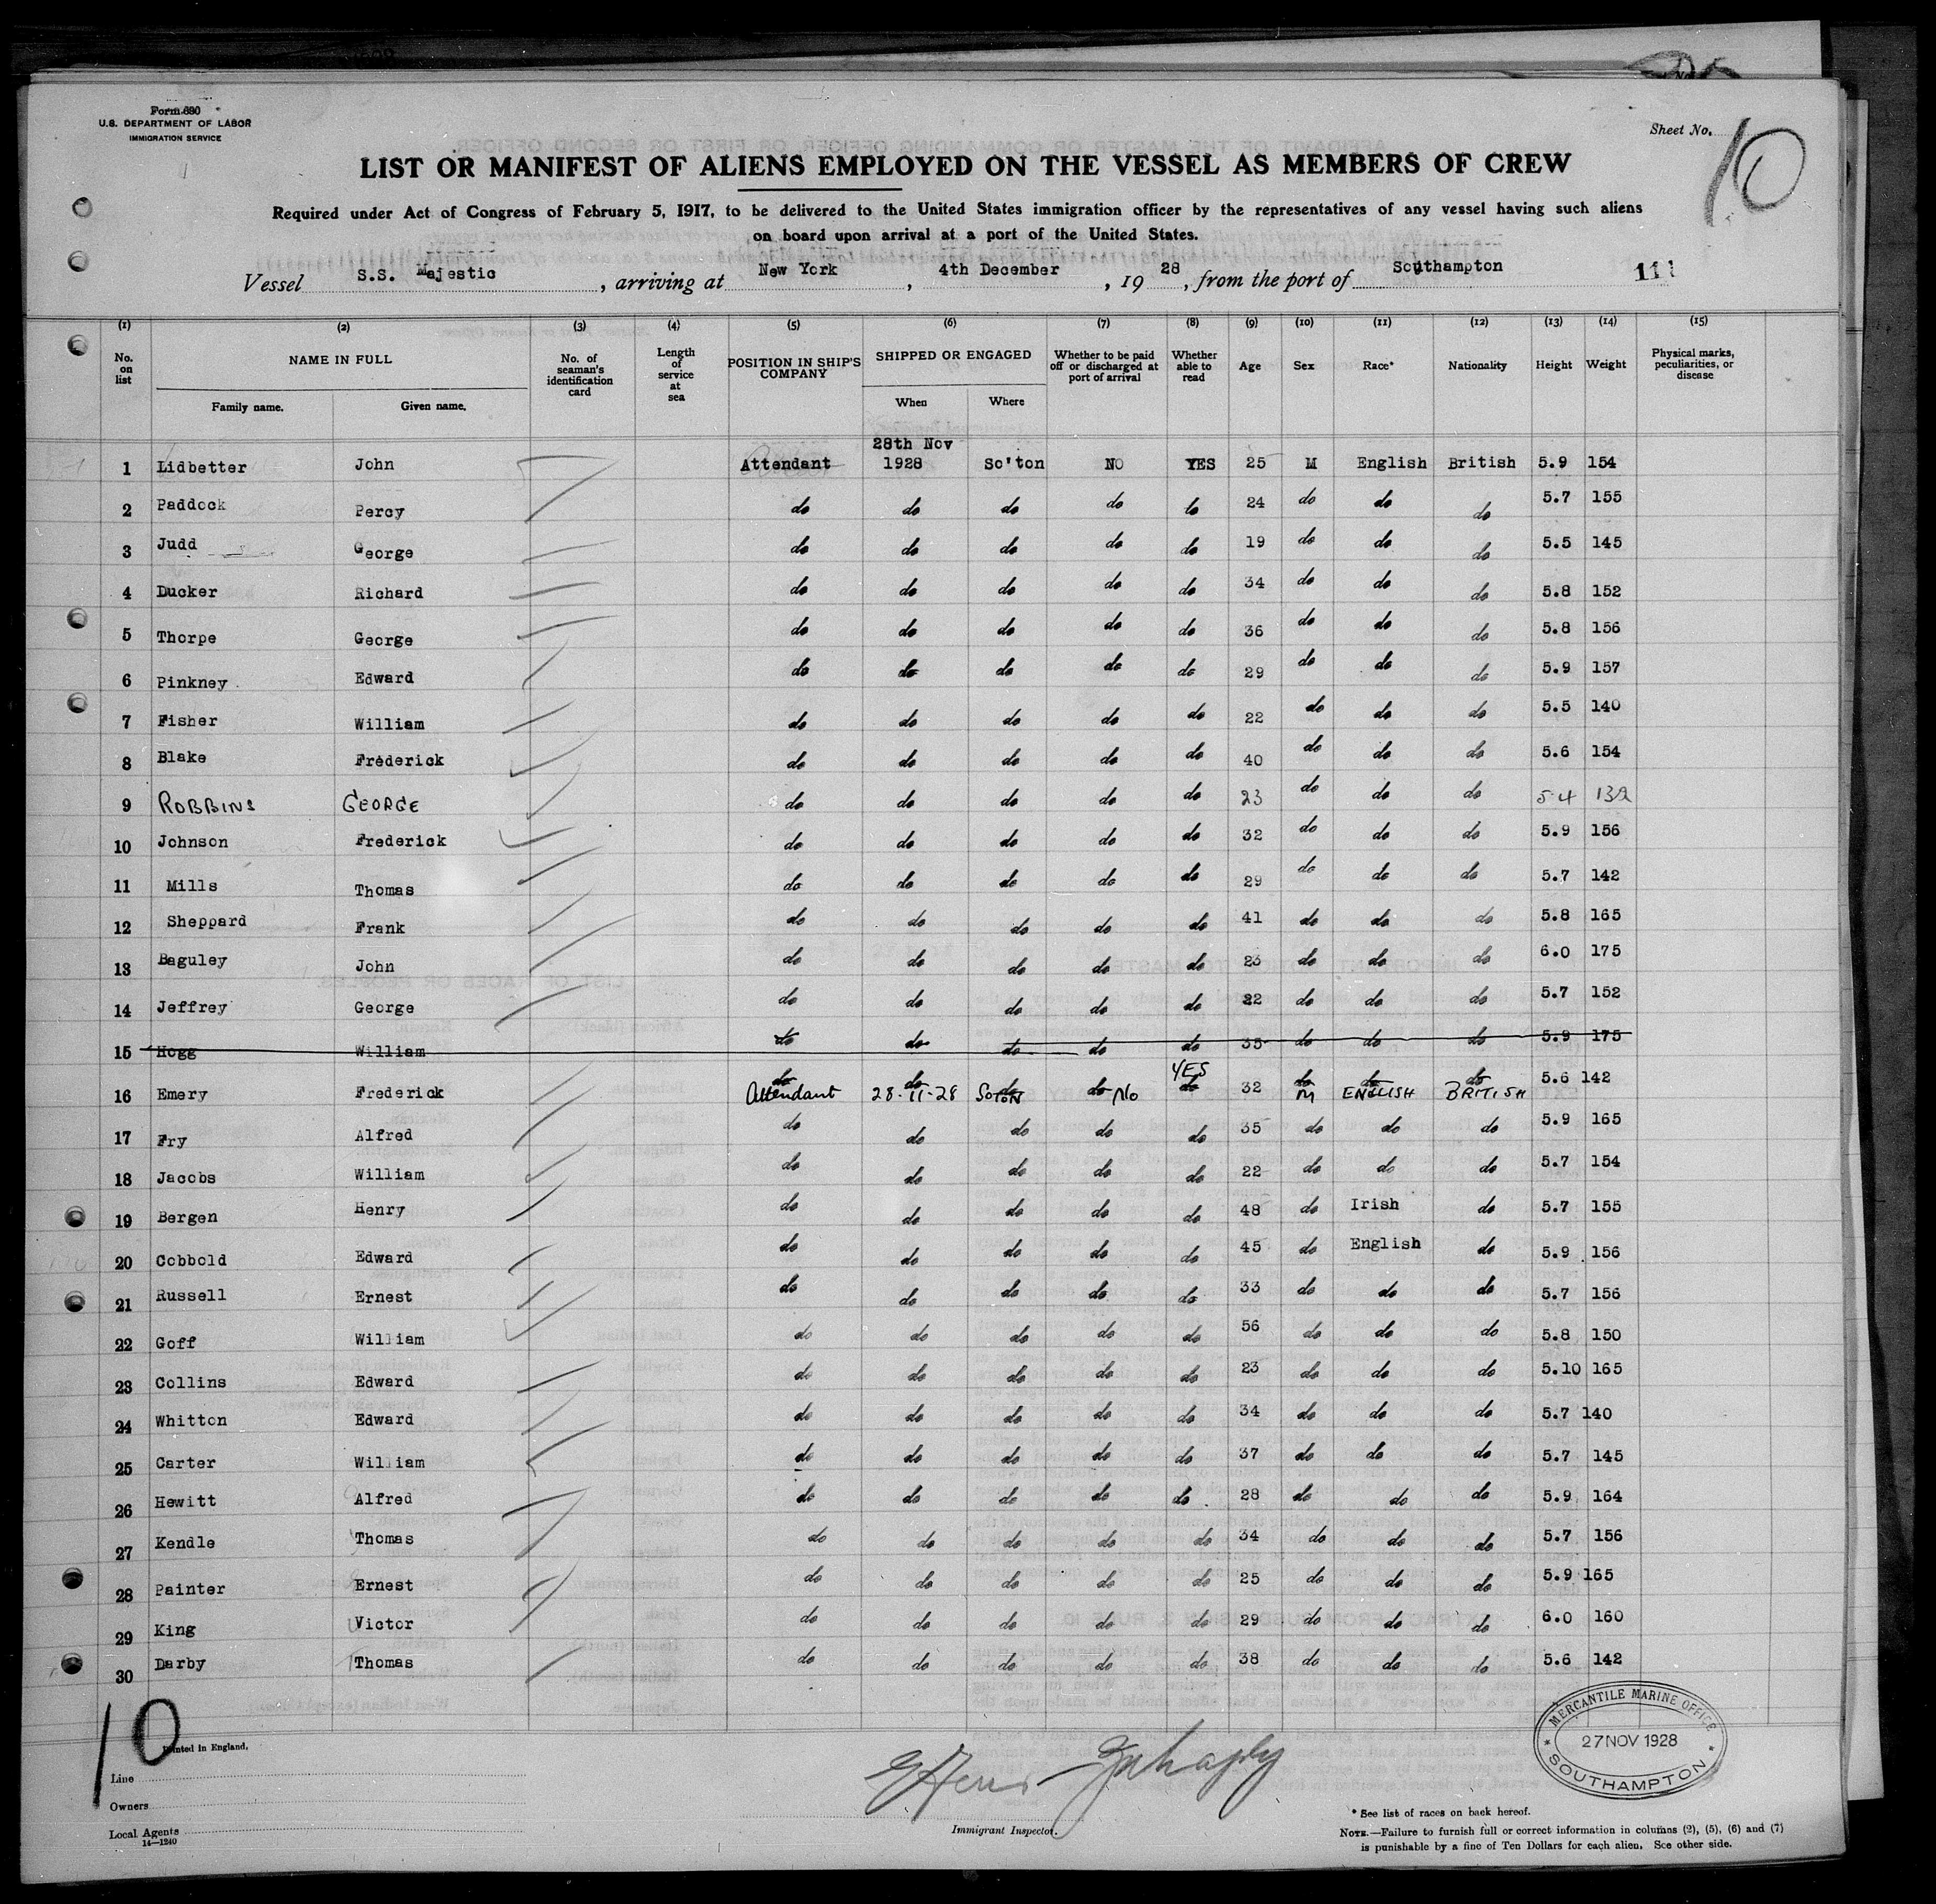 Form 680
U.S. DEPARTMENT OF LABOR
IMMIGRATION SERVICE
Sheet No. 10
LIST OR MANIFEST OF ALIENS EMPLOYED ON THE VESSEL AS MEMBERS OF CREW
Required under Act of Congress of February 5, 1917, to be delivered to the United States immigration officer by the representatives of any vessel having such aliens
on board upon arrival at a port of the United States.
Vessel S.S. Majestic, arriving at New York, 4th December, 1928, from the port of Southampton 111
(1) (2) (3) (4) (5) (6) (7) (8) (9) (10) (11) (12) (13) (14) (15)
No. on list NAME IN FULL Family name. Given name. No. of seaman's identification card Length of service at sea POSITION IN SHIP'S COMPANY SHIPPED OR ENGAGED When Where Whether to be paid off or discharged at port of arrival Whether able to read Age Sex Race* Nationality Height Weight Physical marks, peculiarities, or disease
1 Lidbetter John Attendant 28th Nov 1928 So'ton NO YES 25 M English British 5.9 154
2 Paddock Percy do do do do do 24 do do do 5.7 155
3 Judd George do do do do do 19 do do do 5.5 145
4 Ducker Richard do do do do do 34 do do do 5.8 152
5 Thorpe George do do do do do 36 do do do 5.8 156
6 Pinkney Edward do do do do do 29 do do do 5.9 157
7 Fisher William do do do do do 22 do do do 5.5 140
8 Blake Frederick do do do do do 40 do do do 5.6 154
9 ROBBINS GEORGE do do do do do 23 do do do 5.4 132
10 Johnson Frederick do do do do do 32 do do do 5.9 156
11 Mills Thomas do do do do do 29 do do do 5.7 142
12 Sheppard Frank do do do do do 41 do do do 5.8 165
13 Baguley John do do do do do 23 do do do 6.0 175
14 Jeffrey George do do do do do 22 do do do 5.7 152
15 Hogg William do do do do do 35 do do do 5.9 175
16 Emery Frederick do Attendant do 28-11-28 do SOTON do No do YES 32 do M do ENGLISH do BRITISH 5.6 142
17 Fry Alfred do do do do do 35 do do do 5.9 165
18 Jacobs William do do do do do 22 do do do 5.7 154
19 Bergen Henry do do do do do 48 do Irish do 5.7 155
20 Cobbold Edward do do do do do 45 do English do 5.9 156
21 Russell Ernest do do do do do 33 do do do 5.7 156
22 Goff William do do do do do 56 do do do 5.8 150
23 Collins Edward do do do do do 23 do do do 5.10 165
24 Whitton Edward do do do do do 34 do do do 5.7 140
25 Carter William do do do do do 37 do do do 5.7 145
26 Hewitt Alfred do do do do do 28 do do do 5.9 164
27 Kendle Thomas do do do do do 34 do do do 5.7 156
28 Painter Ernest do do do do do 25 do do do 5.9 165
29 King Victor do do do do do 29 do do do 6.0 160
30 Darby Thomas do do do do do 38 do do do 5.6 142
10
Printed in England.
Line
Owners
Local Agents
14—1240
Immigrant Inspector.
MERCANTILE MARINE OFFICE
27 NOV 1928
SOUTHAMPTON
* See list of races on back hereof.
NOTE.—Failure to furnish full or correct information in columns (2), (5), (6) and (7)
is punishable by a fine of Ten Dollars for each alien. See other side.